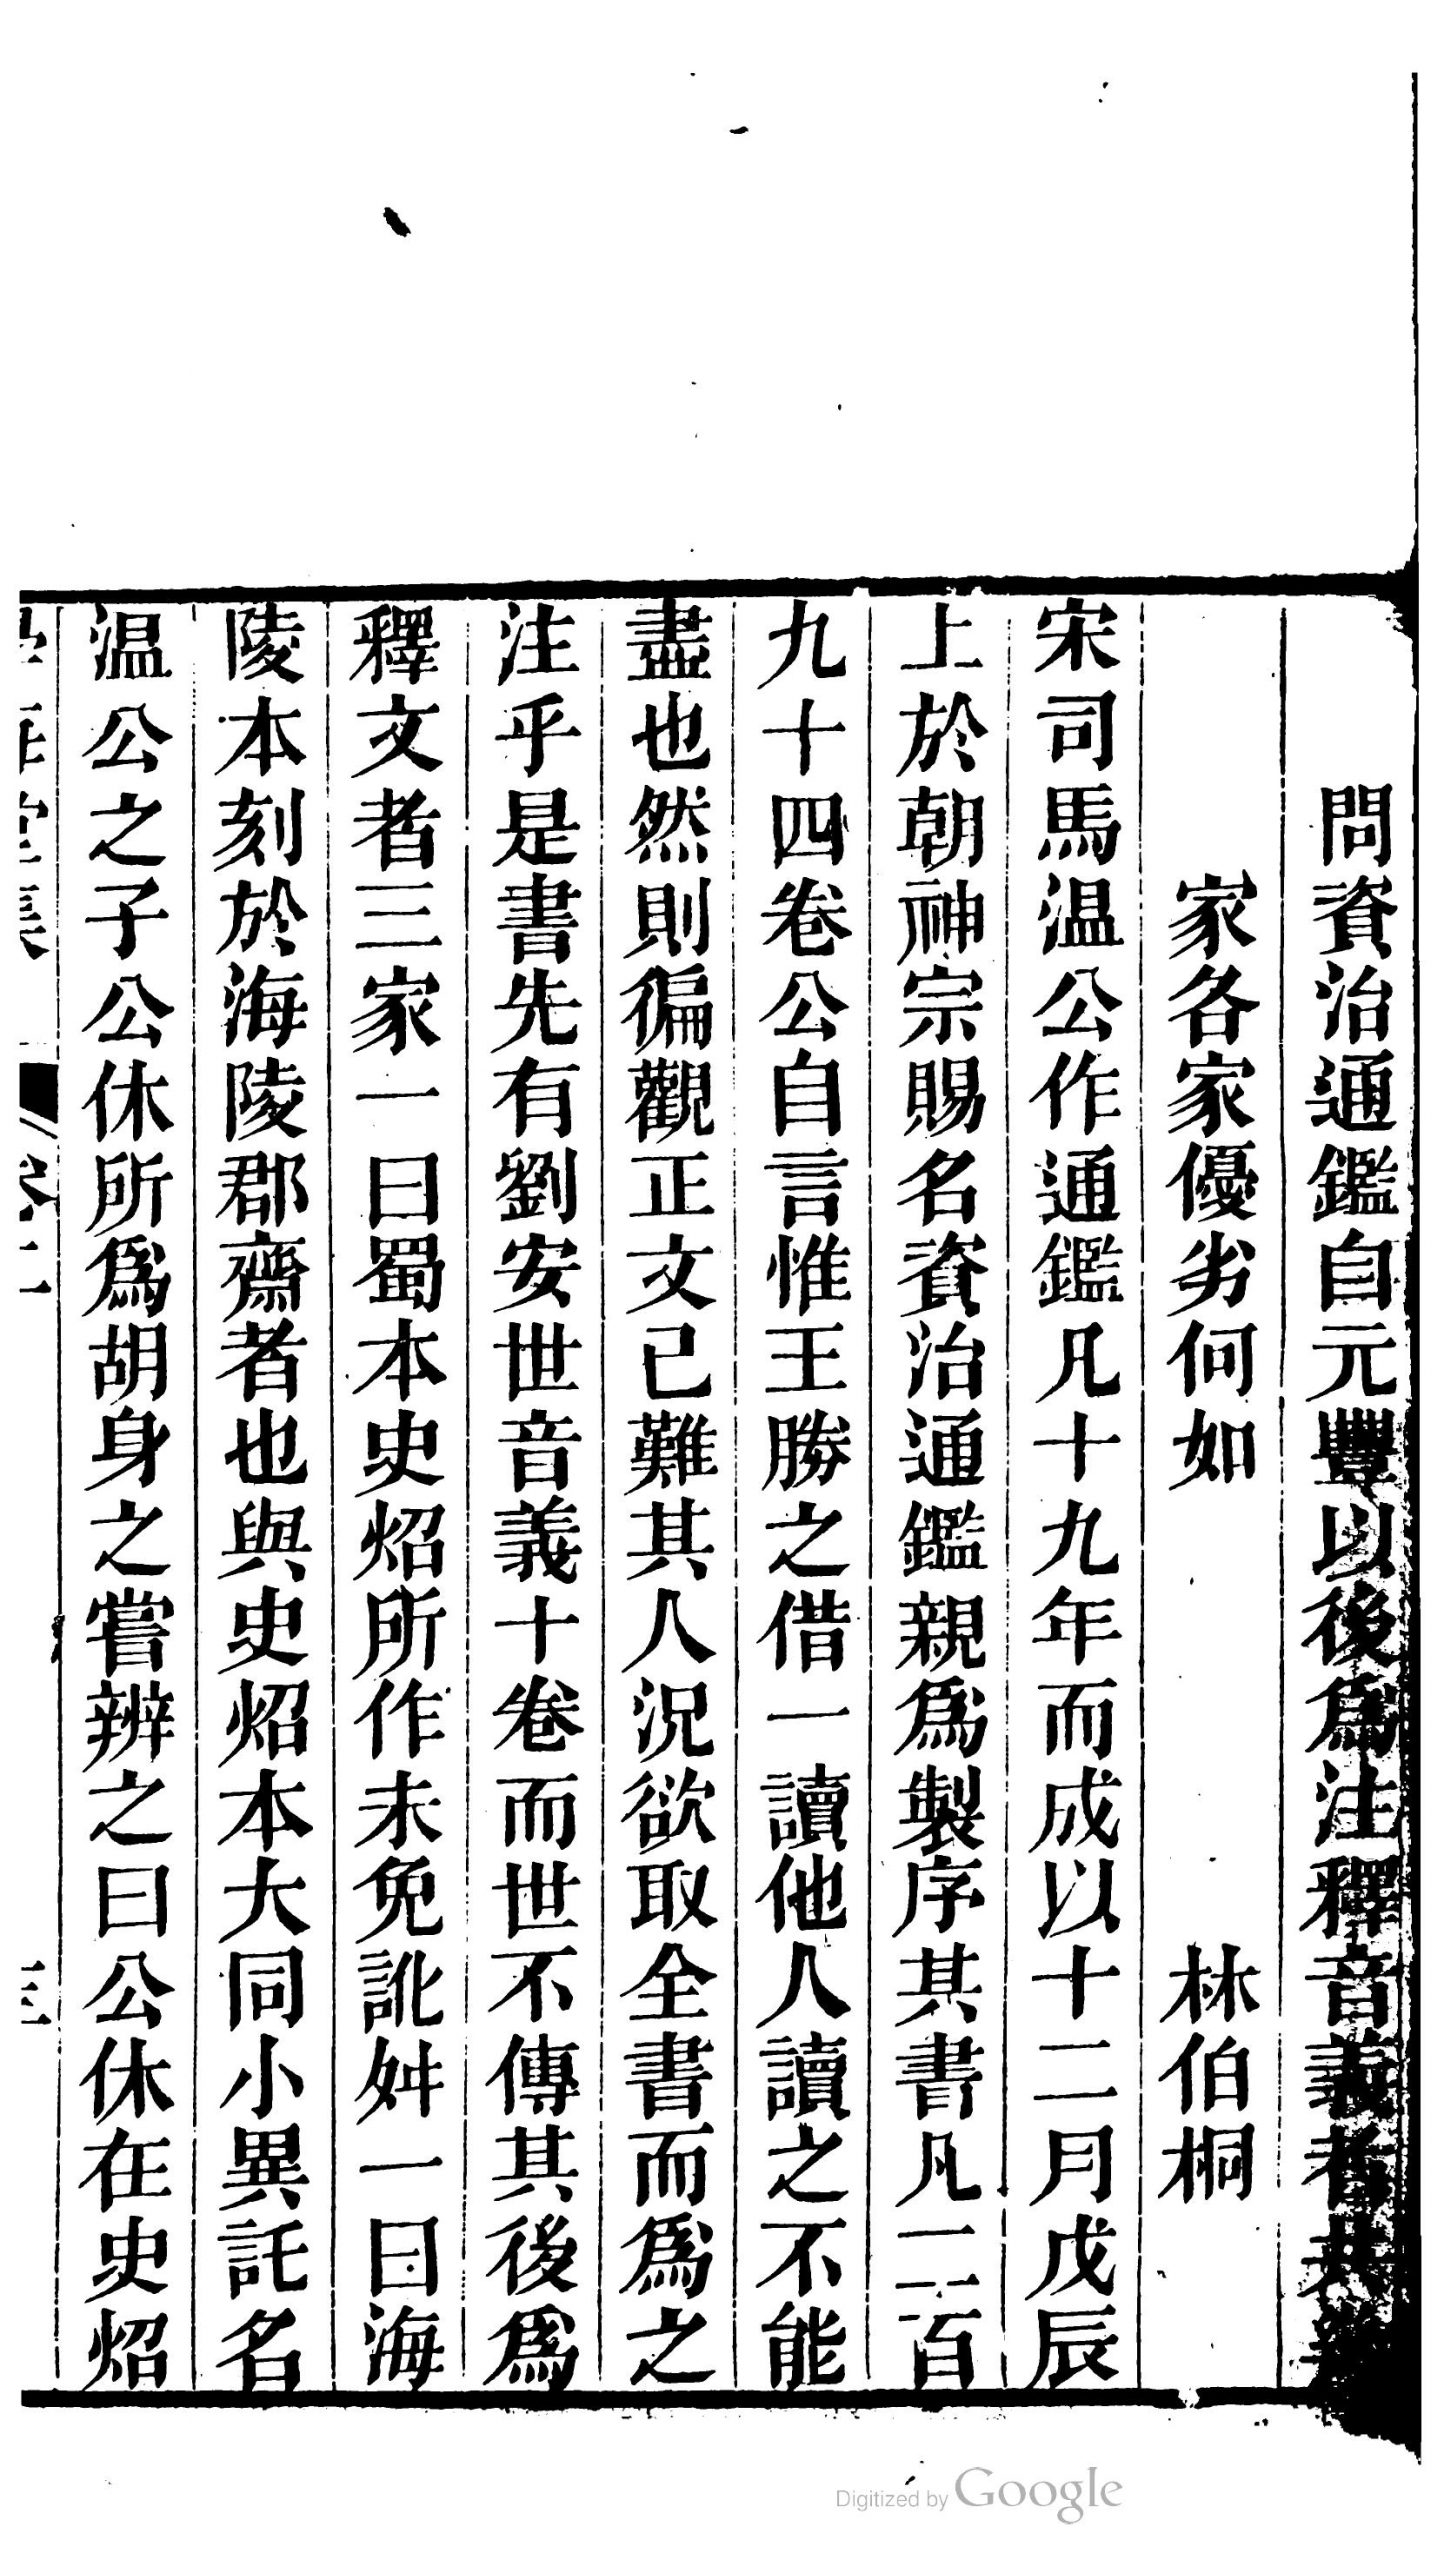 問資治通鑑自元豐以後爲注釋音義者共
家各家優劣何如 林伯桐
宋司馬温公作通鑑凡十九年而成以十二月戊辰
上於朝神宗賜名資治通鑑親爲製序其書凡二百
九十四卷公自言惟王勝之借一讀他人讀之不能
盡也然則徧觀正文已難其人況欲取全書而爲之
注乎是書先有劉安世音義十卷而世不傳其後爲
釋文者三家一曰蜀本史炤所作未免訛舛一曰海
陵本刻於海陵郡齋者也與史炤本大同小異託名
温公之子公休所爲胡身之嘗辨之曰公休在史炤
卷二 三
Digitized by Google